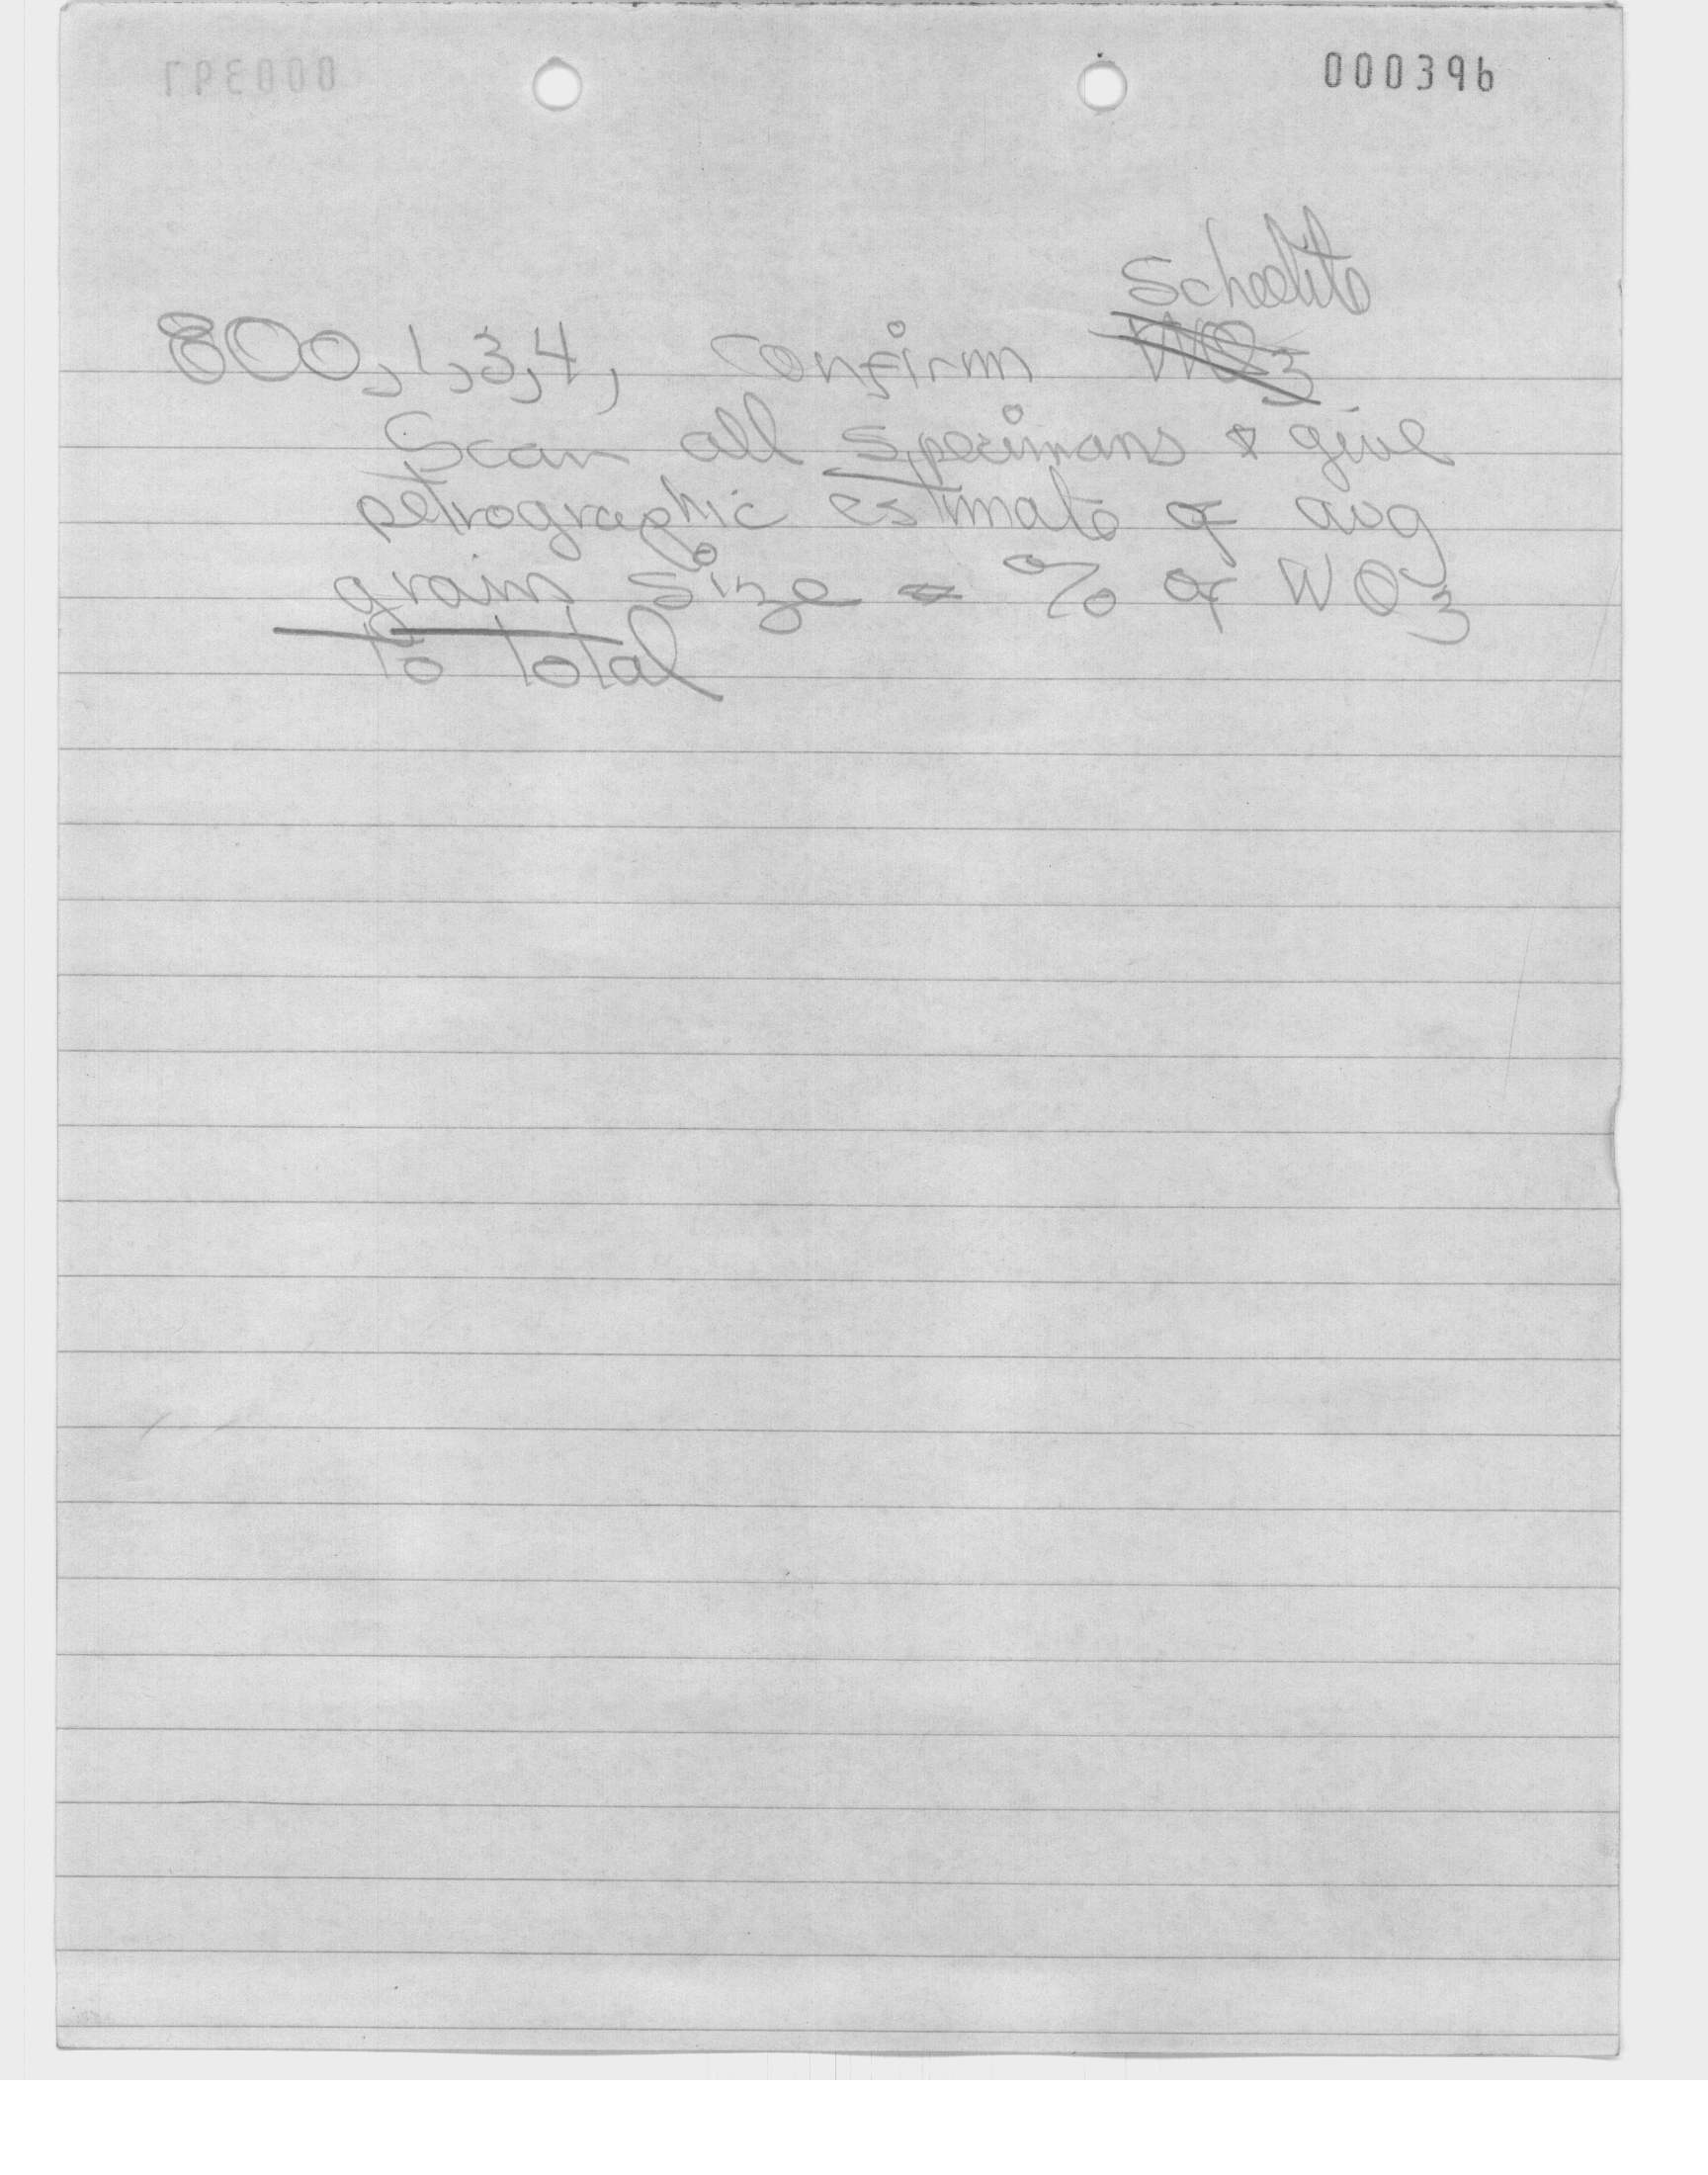 000396
000397
Scheelite
800, 1, 3, 4, confirm WO3
Scan all specimans & give
petrographic estimate of avg
grain size & % of WO3
to total